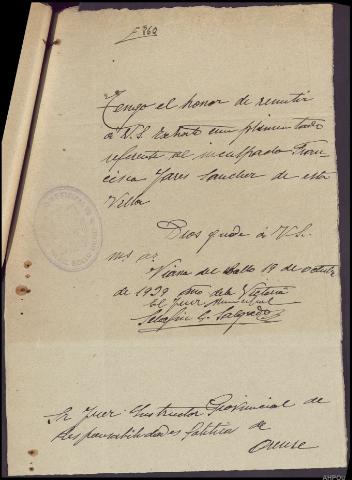 F 860
Tengo el honor de remitir
á V.S. exhorto cumplimentado
referente al inculpado Fran-
cisca Jares Sanchez de esta
Villa.
Dios gude á V.S.
ms as
Viana del Bollo 19 de Octubre
de 1939 Año de la Victoria
El Juez municipal
G. Salgado
Sr Juez Instructor Provincial de
Responsabilidades Politicas de
Orense
AHPOU